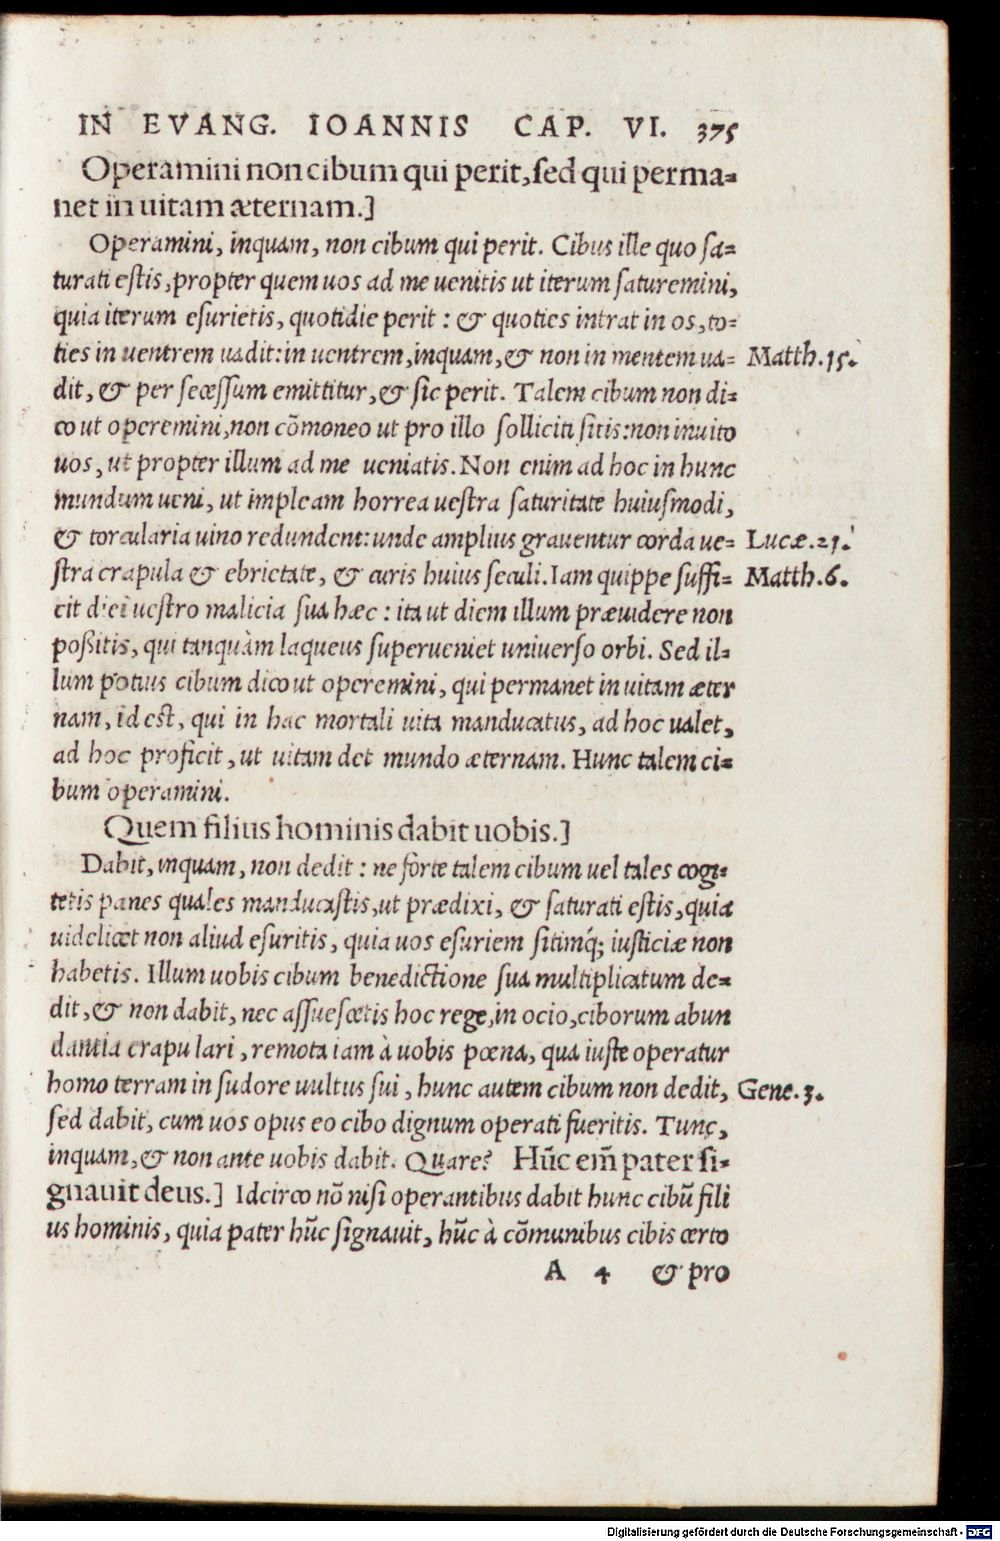 IN EVANG. IOANNIS CAP. VI. 375
Operamini non cibum qui perit, sed qui perma=
net in uitam æternam.]
Operamini, inquam, non cibum qui perit. Cibus ille quo sa=
turati estis, propter quem uos ad me uenitis ut iterum saturemini,
quia iterum esurietis, quotidie perit : & quoties intrat in os, to=
ties in uentrem uadit: in uentrem, inquam, & non in mentem ua= Matth.15.
dit, & per secessum emittitur, & sic perit. Talem cibum non di=
co ut operemini, non cõmoneo ut pro illo solliciti sitis: non inuito
uos, ut propter illum ad me ueniatis. Non enim ad hoc in hunc
mundum ueni, ut impleam horrea uestra saturitate huiusmodi,
& torcularia uino redundent: unde amplius grauentur corda ue= Lucæ.21.
stra crapula & ebrietate, & curis huius seculi. Iam quippe suffi= Matth.6.
cit diei uestro malicia sua hæc : ita ut diem illum præuidere non
poßitis, qui tanquàm laqueus superueniet uniuerso orbi. Sed il=
lum potius cibum dico ut operemini, qui permanet in uitam æter
nam, id est, qui in hac mortali uita manducatus, ad hoc ualet,
ad hoc proficit, ut uitam det mundo æternam. Hunc talem ci=
bum operamini.
Quem filius hominis dabit uobis.]
Dabit, inquam, non dedit : ne forte talem cibum uel tales cogi=
tetis panes quales manducastis, ut prædixi, & saturati estis, quia
uidelicet non aliud esuritis, quia uos esuriem sitimq́; iusticiæ non
habetis. Illum uobis cibum benedictione sua multiplicatum de=
dit, & non dabit, nec assuescetis hoc rege, in ocio, ciborum abun
dantia crapulari, remota iam à uobis pœna, qua iuste operatur
homo terram in sudore uultus sui, hunc autem cibum non dedit, Gene.3.
sed dabit, cum uos opus eo cibo dignum operati fueritis. Tunc,
inquam, & non ante uobis dabit. Quare? Hũc em̃ pater si=
gnauit deus.] Idcirco nõ nisi operantibus dabit hunc cibũ fili
us hominis, quia pater hũc signauit, hũc à cõmunibus cibis certo
A 4 & pro
Digitalisierung gefördert durch die Deutsche Forschungsgemeinschaft - DFG